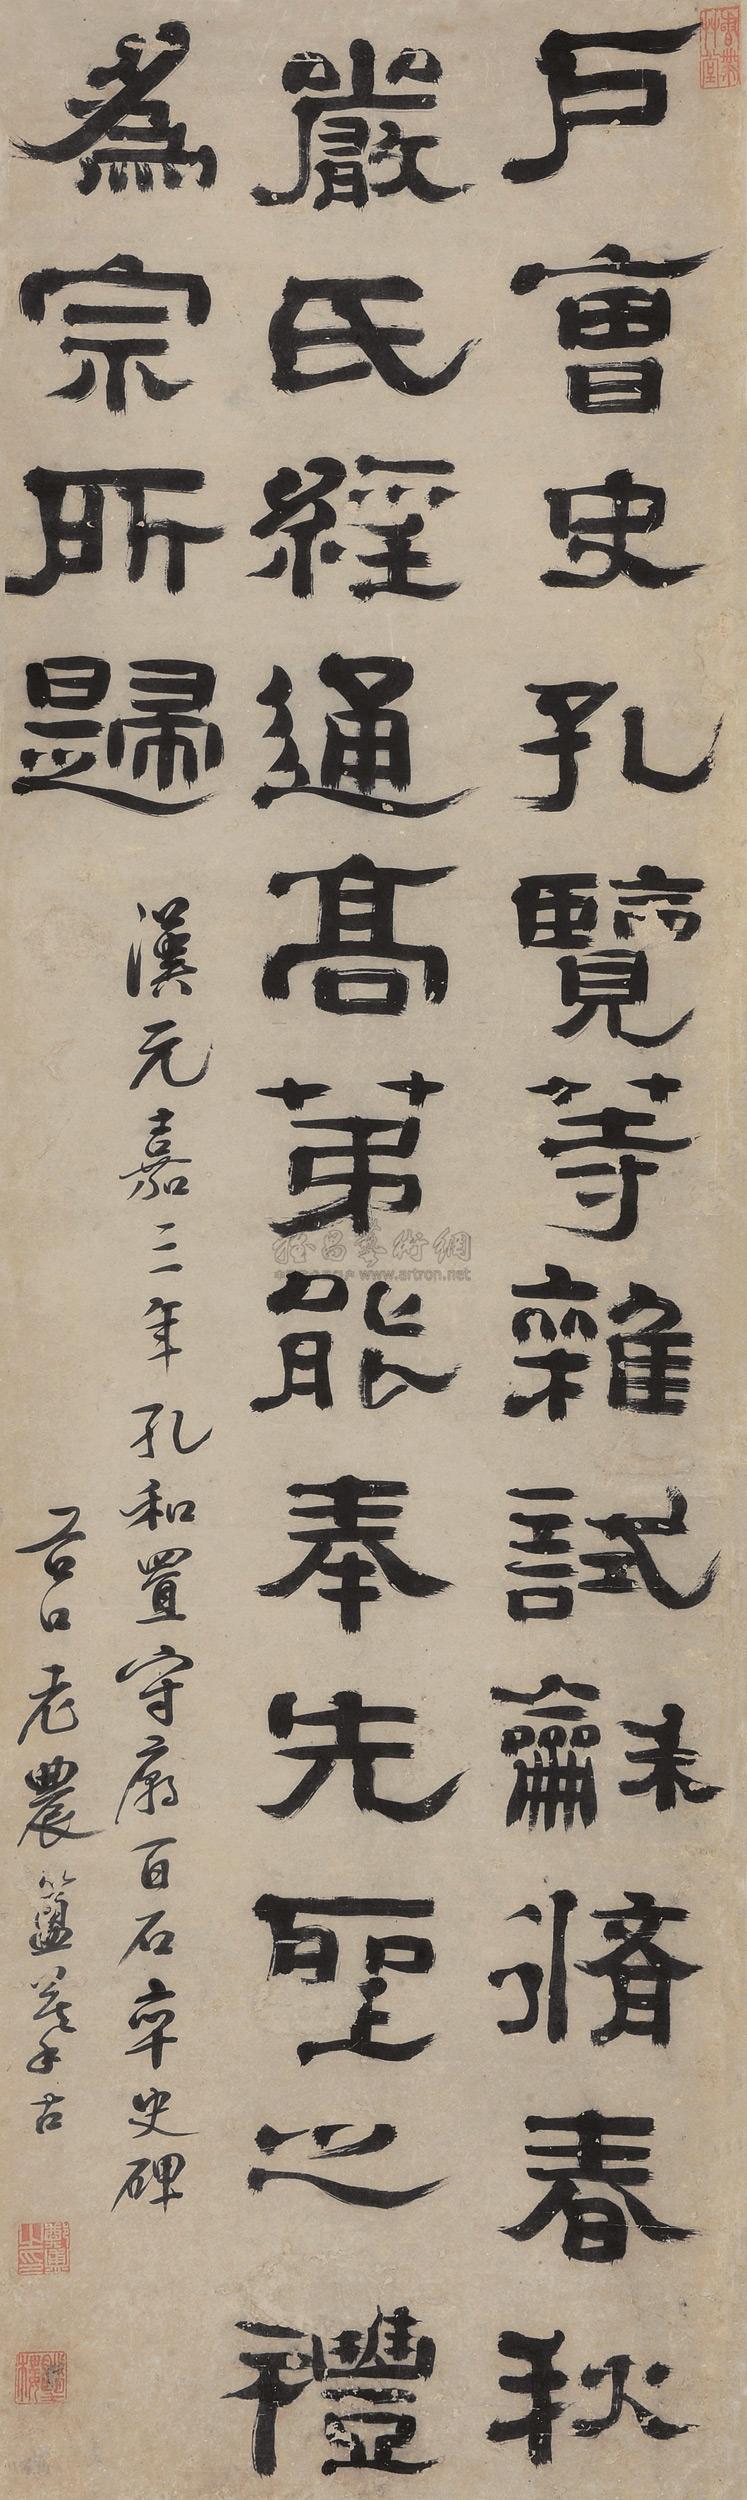 戶曹史孔覽等雜試龢脩春秋
嚴氏經通高第能奉先聖之禮
為宗所歸
漢元嘉三年孔和置守廟百石卒史碑
谷口老農簠摹古
鄭簠之印
書帶草堂
雅昌藝術網
www.artron.net